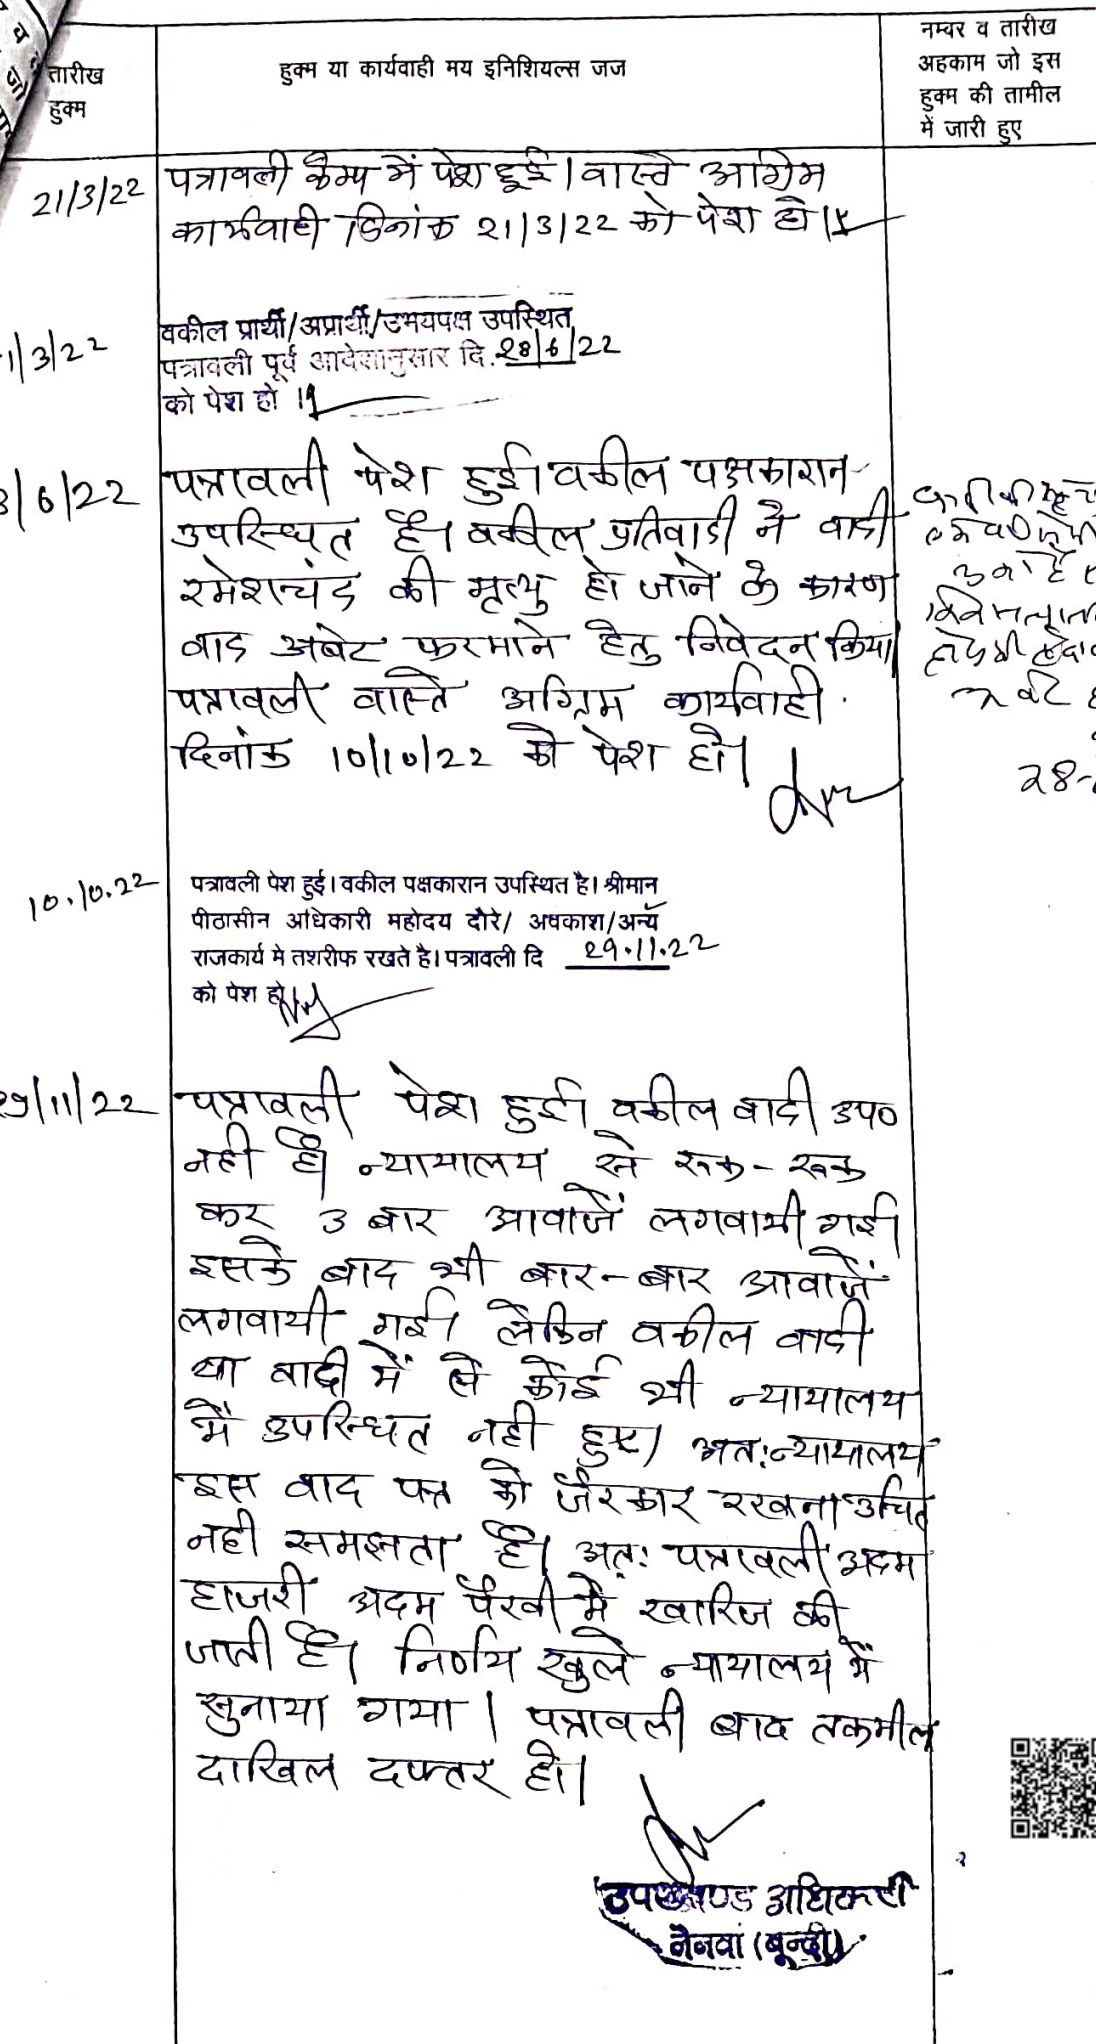 तारीख
हुक्म
हुक्म या कार्यवाही मय इनिशियल्स जज
नम्बर व तारीख
अहकाम जो इस
हुक्म की तामील
में जारी हुए
21/3/22
पत्रावली कैम्प में पेश हुई। वास्ते अग्रिम
कार्यवाही दिनांक 21/3/22 को पेश हो।
1/3/22
वकील प्रार्थी/अप्रार्थी/उभयपक्ष उपस्थित
पत्रावली पूर्व आदेशानुसार दि. 28/6/22
को पेश हो ।
8/6/22
पत्रावली पेश हुई। वकील पक्षकारान
उपस्थित है। वकील प्रतिवादी ने वादी
रमेशचंद की मृत्यु हो जाने के कारण
वाद अबेट फरमाने हेतु निवेदन किया।
पत्रावली वास्ते अग्रिम कार्यवाही
दिनांक 10/10/22 को पेश हो।
28-
10.10.22
पत्रावली पेश हुई। वकील पक्षकारान उपस्थित है। श्रीमान
पीठासीन अधिकारी महोदय दौरे/ अवकाश/अन्य
राजकार्य मे तशरीफ रखते है। पत्रावली दि 29.11.22
को पेश हो
29/11/22
पत्रावली पेश हुई। वकील वादी उप०
नही है। न्यायालय से रूक-रूक
कर 3 बार आवाजें लगवायी गई।
इसके बाद भी बार-बार आवाजें
लगवायी गई। लेकिन वकील वादी
या वादी में से कोई भी न्यायालय
में उपस्थित नही हुए। अत: न्यायालय
इस वाद पत्र को जैरकार रखना उचित
नही समझता है। अत: पत्रावली अदम
हाजरी अदम पैरवी में खारिज की
जाती है। निर्णय खुले न्यायालय में
सुनाया गया। पत्रावली बाद तकमील
दाखिल दफ्तर हो।
उपखण्ड अधिकारी
नैनवां (बून्दी)